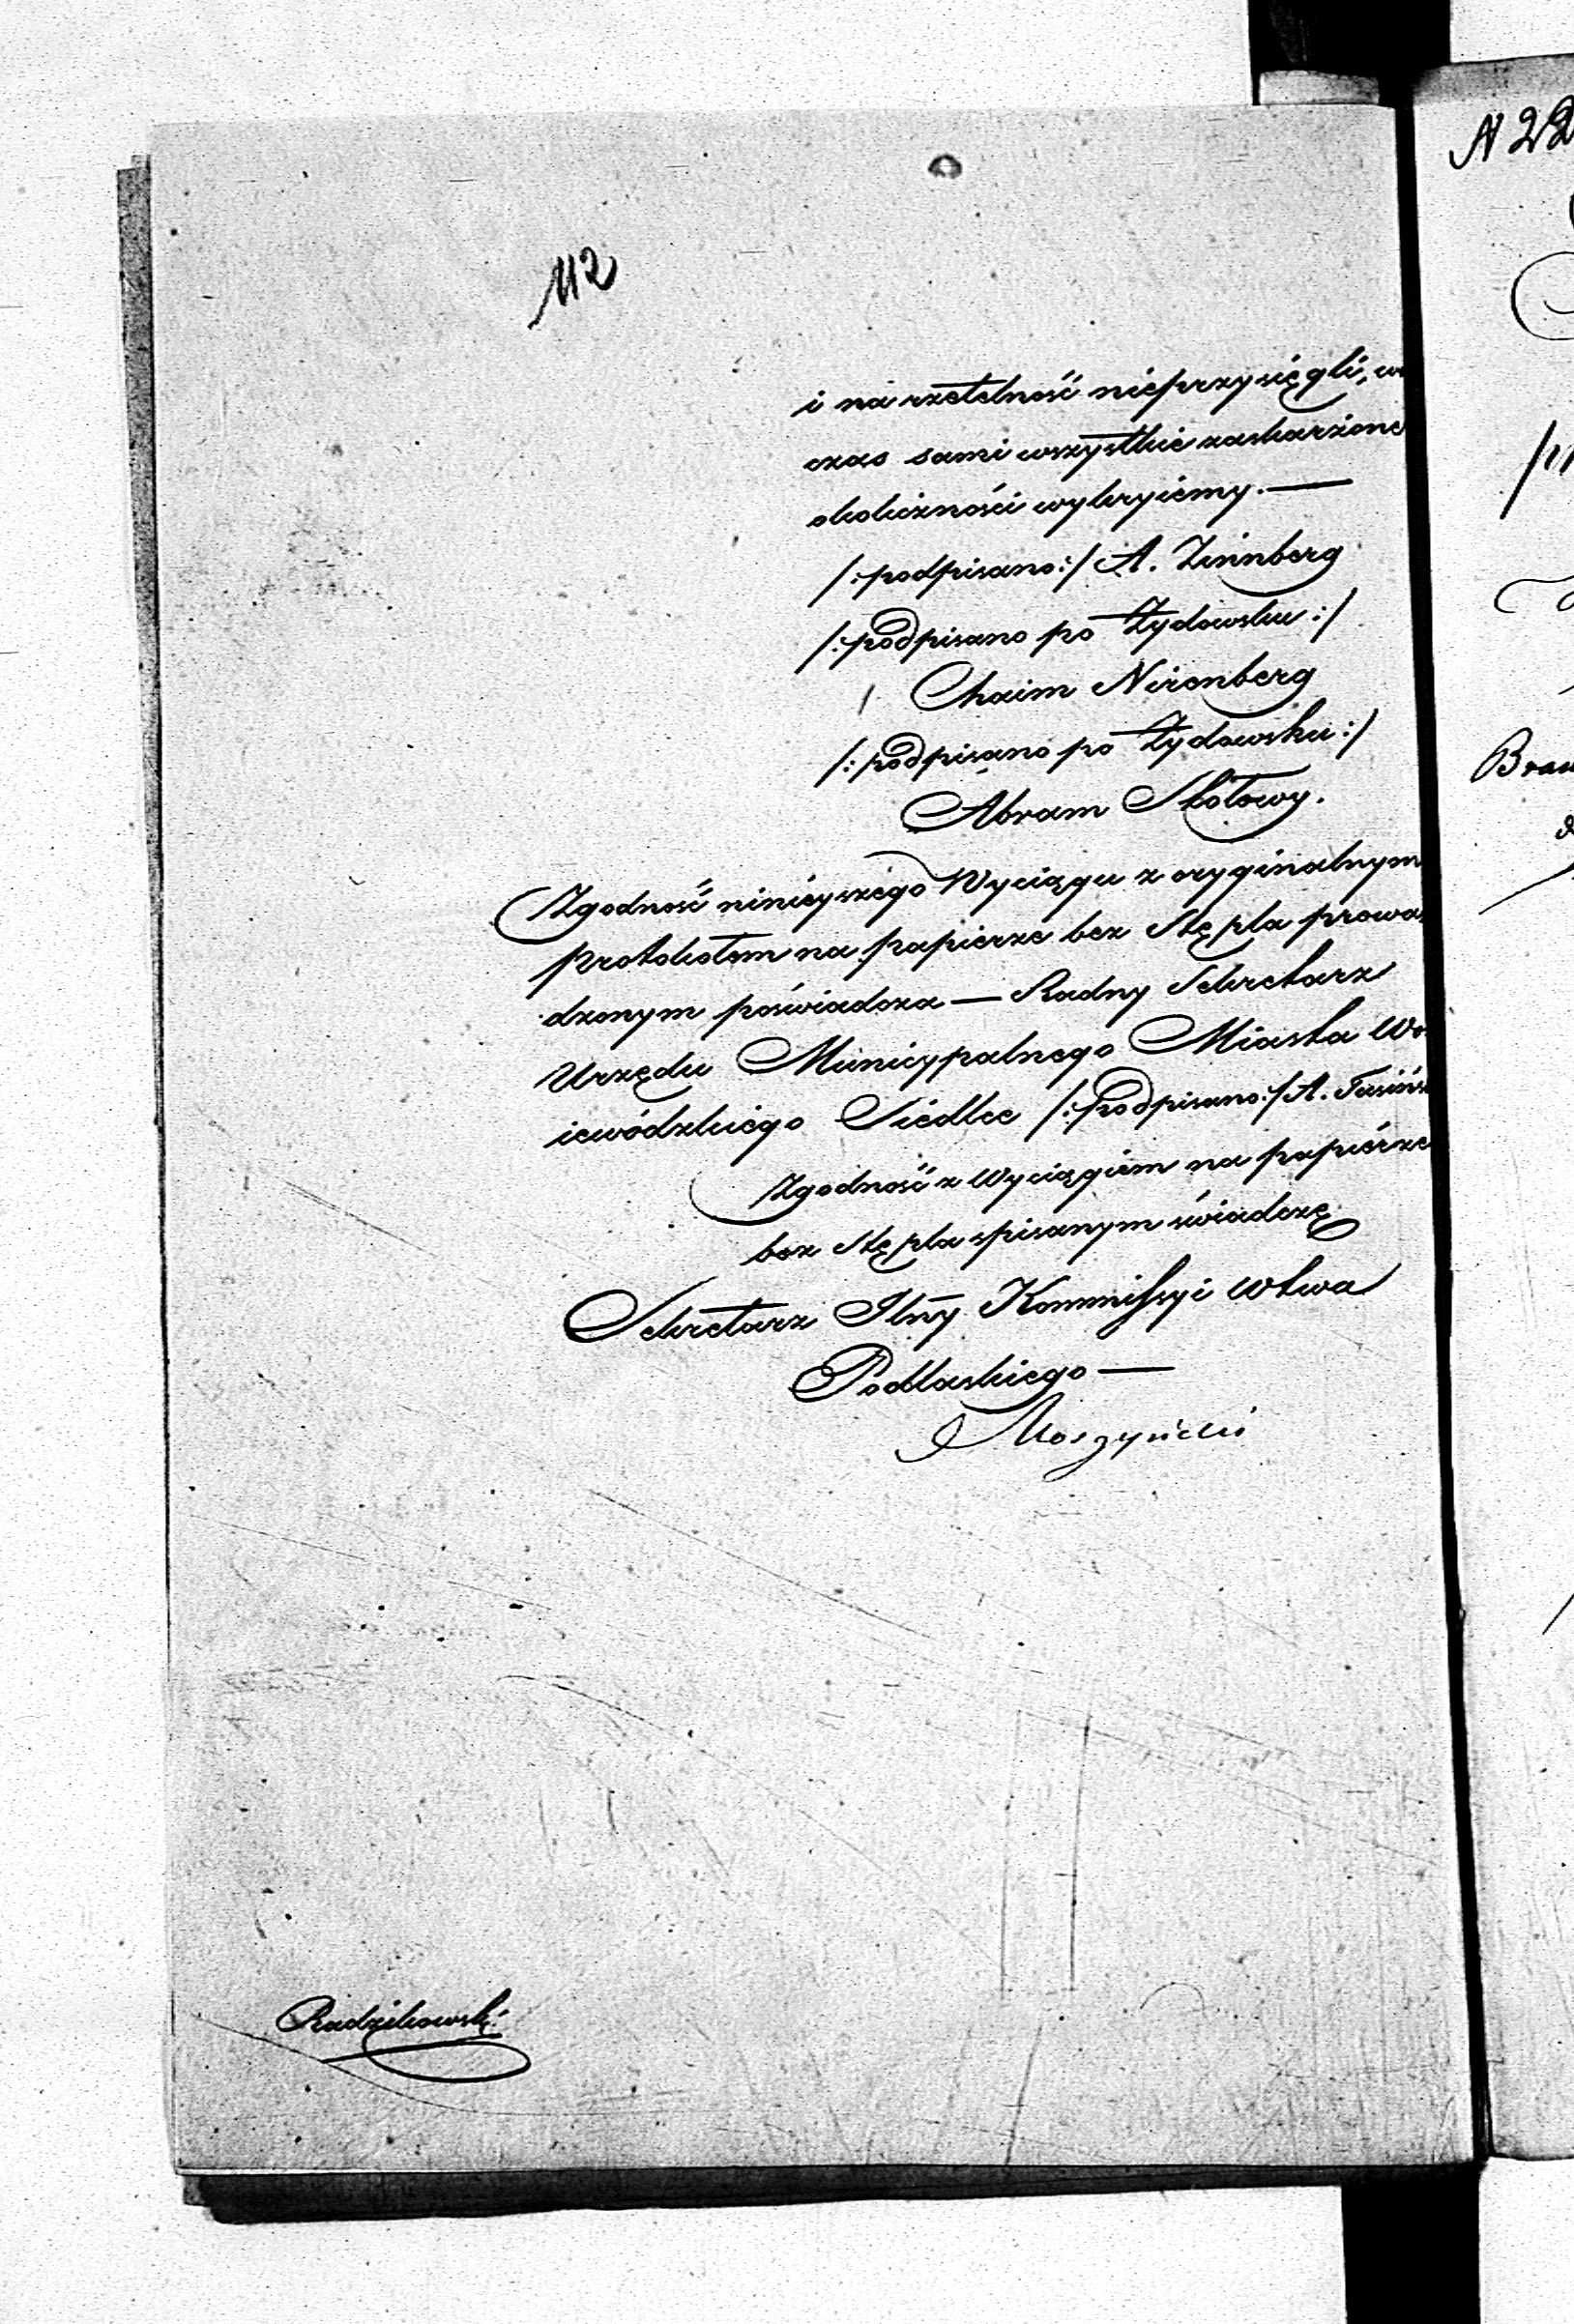 112
i na rzetelność nieprzysięgli, w
czas sami wszystkie zaskarzone
okoliczności wykryiemy. —
/: podpisano :/ A. Zinnberg
/: podpisano po Żydowsku :/
Chaim Nirenberg
/: podpisano po Żydowsku :/
Abram Stołowy.
Zgodność ninieyszego Wyciągu z oryginalnym
Protokołem na papierze bez Stępla prowa
dzonym poświadcza — Radny Sekretarz
Urzędu Municypalnego Miasta Wo
iewódzkiego Siedlec /: podpisano :/ A.
Zgodność z Wyciągiem na papiérze
bez Stępla spisanym świadczę
Sekretarz Jlny Kommissyi Wtwa
Podlaskiego —
Radzikowski
N 22
Brau